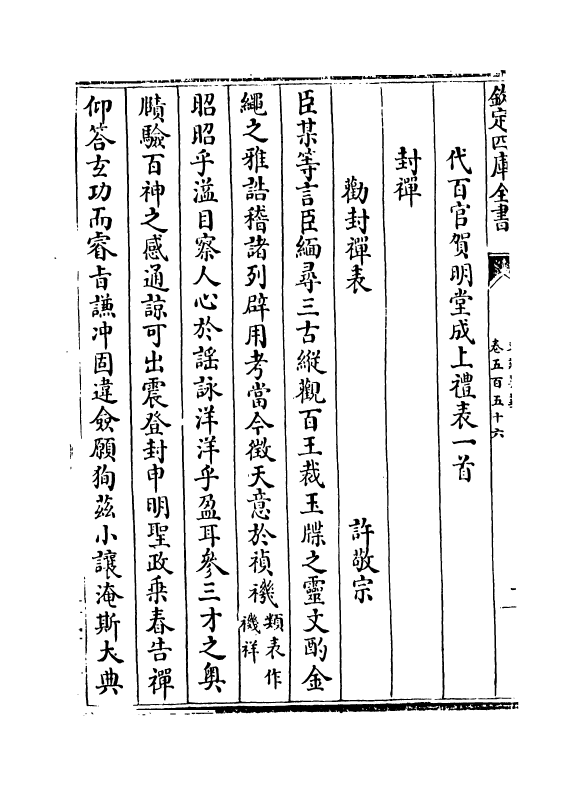 欽定四庫全書
卷五百五十六
代百官賀明堂成上禮表一首
封禪
勸封禪表 許敬宗
臣某等言臣緬尋三古縱觀百王裁玉牒之靈文酌金
繩之雅誥稽諸列辟用考當今徵天意於禎禨類表作禨祥
昭昭乎溢目察人心於謡詠洋洋乎盈耳參三才之奥
賾驗百神之感通諒可出震登封申明聖政乗春告禪
仰答玄功而睿旨謙冲固違僉願狥兹小讓淹斯大典